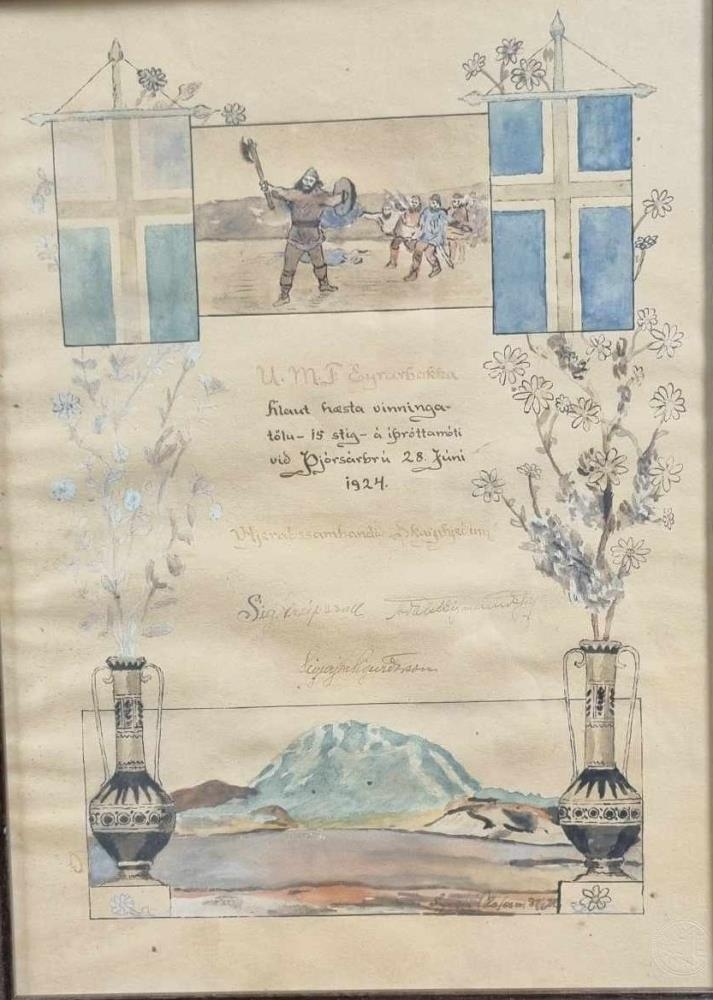 U. M. F Eyrarbakka
hlaut hæsta vinninga-
tölu - 15 stig - á íþróttamóti
við Þjórsárbrú 28. Júní
1924.
Hjeraðssambandið Skarphjeðinn
Sig. Greipsson